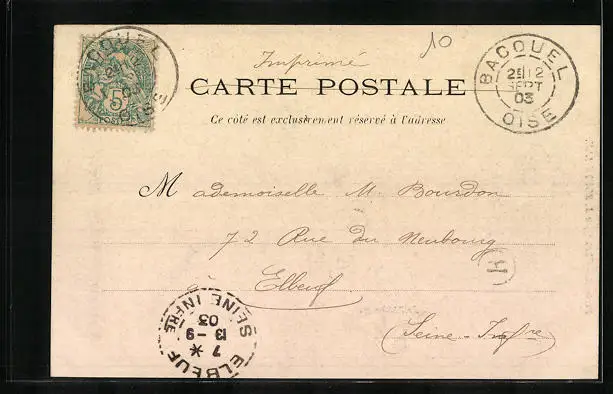 10
Imprimé
CARTE POSTALE
Ce côté est exclusivement réservé à l'adresse
BACOUEL
12
SEPT
03
OISE
5c
POSTES
Mademoiselle M. Bourdon
72 Rue du Neubourg
à Elbeuf
(Seine-Infre)
ELBEUF
SEINE INFRE
7 *
13 -9
03